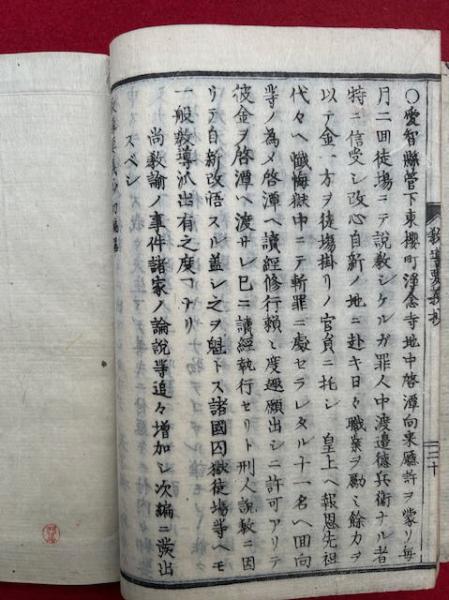 ○愛智縣管下東櫻町淨念寺地中啓潭向來廳許ヲ蒙リ毎
月二回徒場ニテ説敎シケルガ罪人中渡邉德兵衛ナル者
特ニ信受シ改心自新ノ地ニ赴キ日々職業ヲ勵ミ餘力ヲ
以テ金一方ヲ徒塲掛リノ官員ニ托シ　皇上ヘ報恩先祖
代々ヘ懺悔獄中ニテ斬罪ニ處セラレタル十一名ヘ回向
等ノ為メ啓潭ヘ讀經修行頼ミ度趣願出シニ許可アリテ
彼金ヲ啓潭ヘ渡サレ已ニ讀經執行セリト刑人説敎ニ因
リテ自新改悟スル蓋シ之ヲ魁トス諸國囚獄徒塲等ヘモ
一般敎導派出有之度コナリ
尚敎諭ノ事件諸家ノ論説等追々增加シ次編ニ差出
スベシ
二十